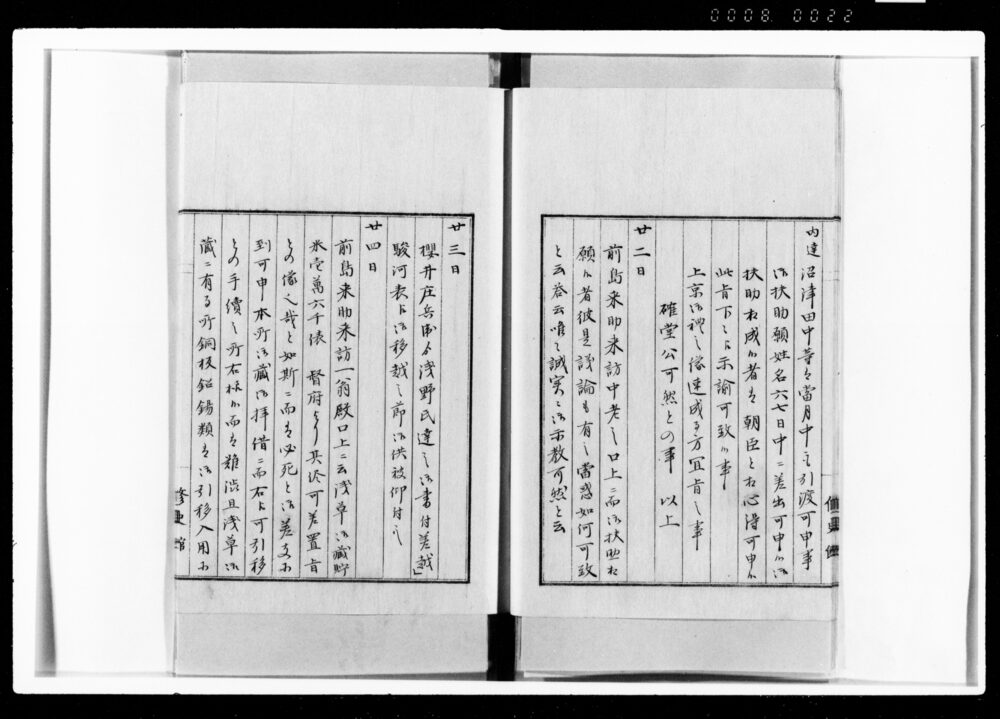 0008 0022
内達 沼津田中等者當月中ニも引渡可申事
御扶助願姓名六七日中ニ差出可申御
扶助相成候者者 朝臣と相心得可申候
此旨下々に示諭可致候事
上京御禮之儀速成る方宜旨之事
確堂公可然との事 以上
廿二日
前島来助来訪中老之口上ニ而御扶助相
願候者彼是議論も有之當惑如何可致
と云答云唯々誠実ニ御示教可然と云
廿三日
櫻井庄兵衛ゟ浅野民達之御書付差越」
駿河表に御移越之節御供被仰付之
廿四日
前島来助来訪一翁殿口上ニ云浅草御蔵貯
米壱萬六千俵 督府より其侭可差置旨
との儀之哉と如斯ニ而者必死と御差支ニ
到可申本所御蔵御拝借ニ而右に可引移
との手續之所右様ニ而者難渋且浅草御
蔵ニ有る所銅板鉛錫類者御引移入用ニ
修史館
修史館